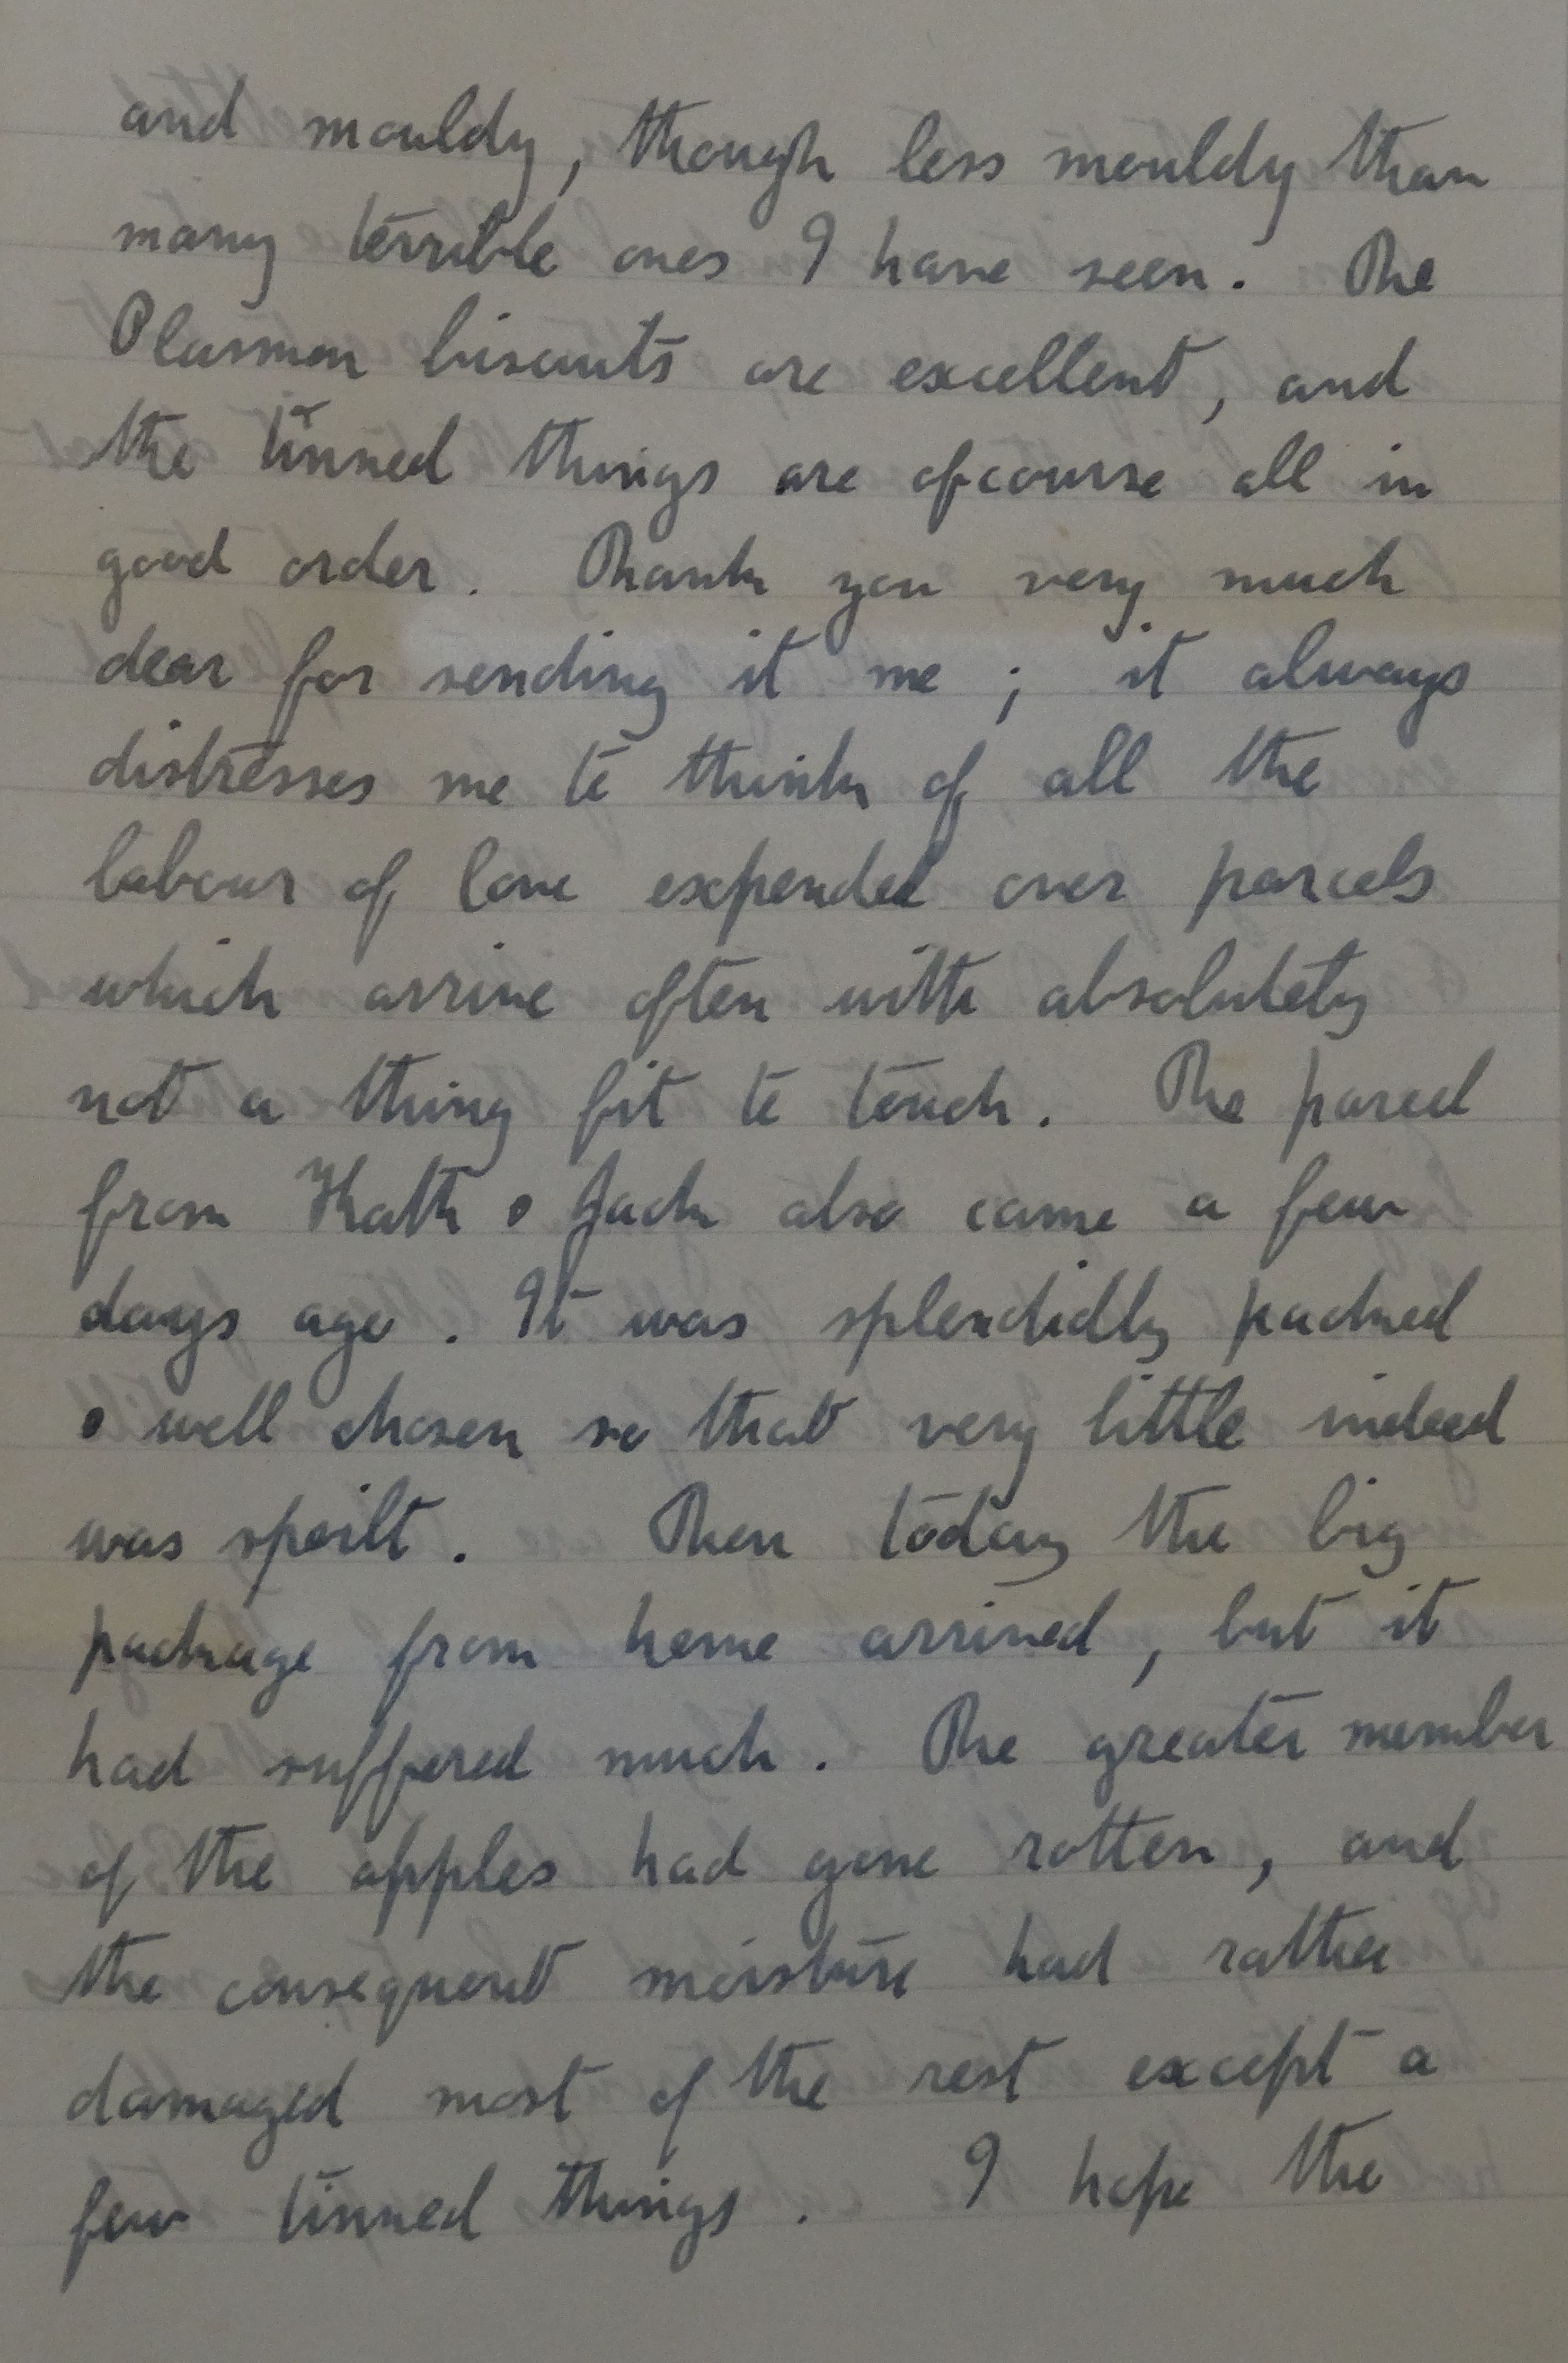 and mouldy, though less mouldy than
many terrible ones I have seen. The
Plasmon biscuits are excellent, and
the tinned things are ofcourse all in
good order. Thank you very much
dear for sending it me; it always
distresses me to think of all the
labour of love expended over parcels
which arrive often with absolutely
not a thing fit to touch. The parcel
from Kath & Jack also came a few
days ago. It was splendidly packed
& well chosen so that very little indeed
was spoilt. Then today the big
package from home arrived, but it
had suffered much. The greater member
of the apples had gone rotten, and
the consequent moisture had rather
damaged most of the rest except a
few tinned things. I hope the